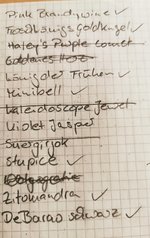 Pink Brandywine ✓
Frühlings Goldkugel ✓
Haley's Purple Comet
Goldenes Herz
Königin der Frühen ✓
Minibell ✓
Kaleidoscope Jewel
Violet Jasper
Stupice ✓
Zitomandra ✓
De Barao schwarz ✓